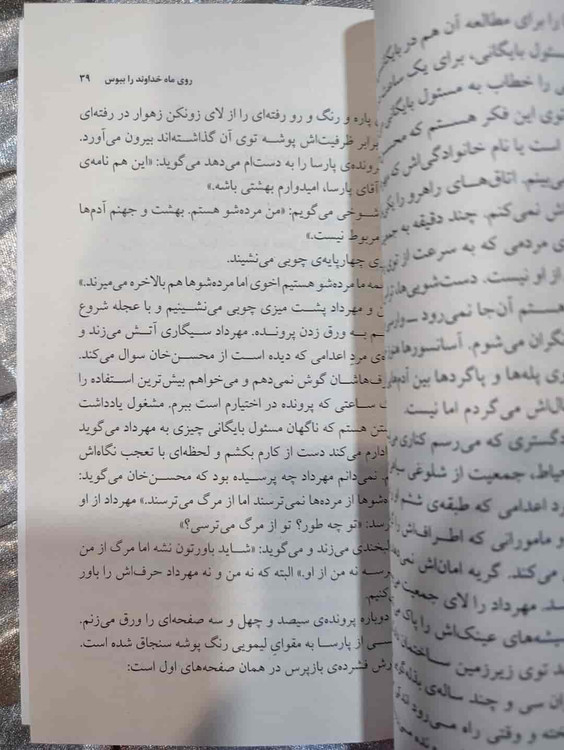 را برای مطالعه آن هم در بایگانی
مسئول بایگانی، برای یک ساعت
ی را خطاب به مسئول بایگانی
توی این فکر هستم که
است یا نام خانوادگی‌اش که
می‌بینم. اتاق‌های راهرو را یکی
اش نمی‌کنم. چند دقیقه به
ی مردمی که به سرعت از توی
از او نیست. دست‌شویی‌ها،
هستم آن‌جا نمی‌رود
نگران می‌شوم. آسانسورها
وی پله‌ها و پاگردها بین آدم‌ها
الاش می‌گردم اما نیست.
دگستری که می‌رسم کناری
حیاط، جمعیت از شلوغی
رد اعدامی که طبقه‌ی ششم
و مامورانی که اطراف‌اش را
ی می‌کند. گریه امان‌اش
مهرداد را لای جمعیت
یشه‌های عینک‌اش را پاک
توی زیرزمین ساختمان
ان سی و چند ساله‌ی
و وقتی راه می‌رود
روی ماه خداوند را ببوس ۳۹
پاره و رنگ و رو رفته‌ای را از لای زونکن زهوار در رفته‌ای
برابر ظرفیت‌اش پوشه توی آن گذاشته‌اند بیرون می‌آورد.
رونده‌ی پارسا را به دست‌ام می‌دهد می‌گوید: «این هم نامه‌ی
آقای پارسا، امیدوارم بهشتی باشه.»
شوخی می‌گویم: «من مرده‌شو هستم. بهشت و جهنم آدم‌ها
مربوط نیست.»
ی چهارپایه‌ی چوبی می‌نشیند.
همه ما مرده‌شو هستیم اخوی اما مرده‌شوها هم بالاخره می‌میرند.»
ن و مهرداد پشت میزی چوبی می‌نشینیم و با عجله شروع
م به ورق زدن پرونده. مهرداد سیگاری آتش می‌زند و
ی مرد اعدامی که دیده است از محسن‌خان سوال می‌کند.
رف‌هاشان گوش نمی‌دهم و می‌خواهم بیش‌ترین استفاده را
ساعتی که پرونده در اختیارم است ببرم. مشغول یادداشت
شتن هستم که ناگهان مسئول بایگانی چیزی به مهرداد می‌گوید
ادارم می‌کند دست از کارم بکشم و لحظه‌ای با تعجب نگاه‌اش
م. نمی‌دانم مهرداد چه پرسیده بود که محسن‌خان می‌گوید:
ه‌شوها از مرده‌ها نمی‌ترسند اما از مرگ می‌ترسند.» مهرداد از او
رسد: «تو چه طور؟ تو از مرگ می‌ترسی؟»
لبخندی می‌زند و می‌گوید: «شاید باورتون نشه اما مرگ از من
ترسه نه من از او.» البته که نه من و نه مهرداد حرف‌اش را باور
کنیم.
دوباره پرونده‌ی سیصد و چهل و سه صفحه‌ای را ورق می‌زنم.
سی از پارسا به مقوای لیمویی رنگ پوشه سنجاق شده است.
رش فشرده‌ی بازپرس در همان صفحه‌های اول است: